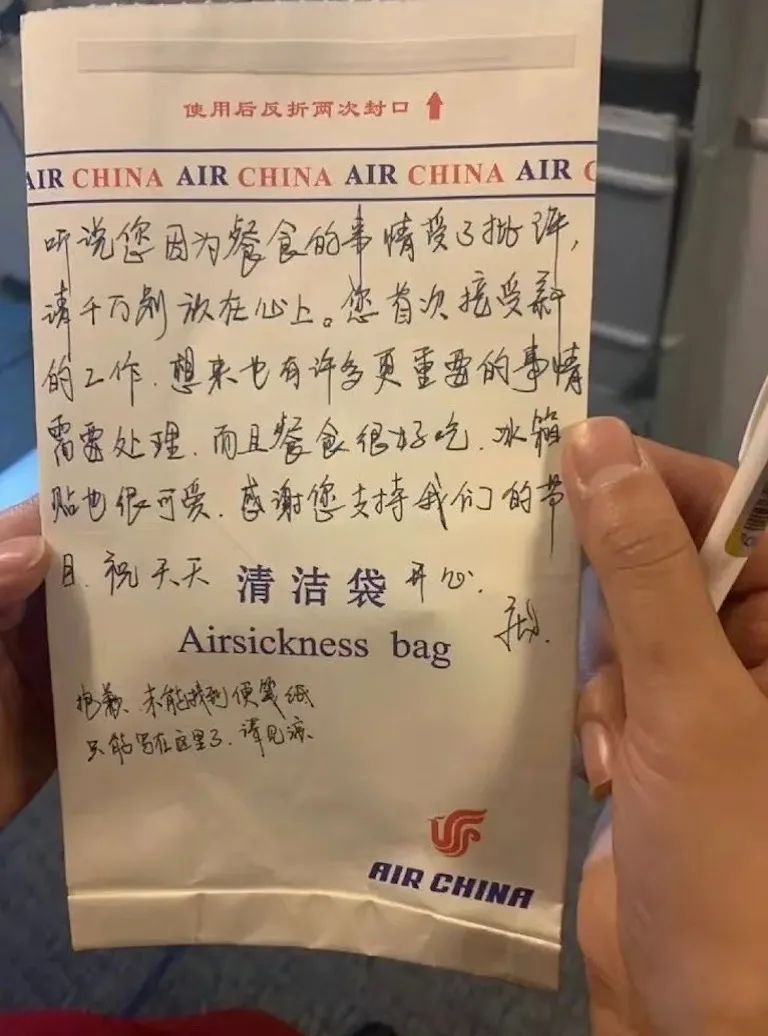 使用后反折两次封口
AIR CHINA AIR CHINA AIR CHINA AIR C
听说您因为餐食的事情受了批评，
请千万别放在心上。您首次接受新
的工作，想来也有许多更重要的事情
需要处理，而且餐食很好吃，冰箱
贴也很可爱，感谢您支持我们的节
目，祝天天 清洁袋 开心．
Airsickness bag
抱歉，未能找到便笺纸
只能写在这里了，请见谅．
AIR CHINA